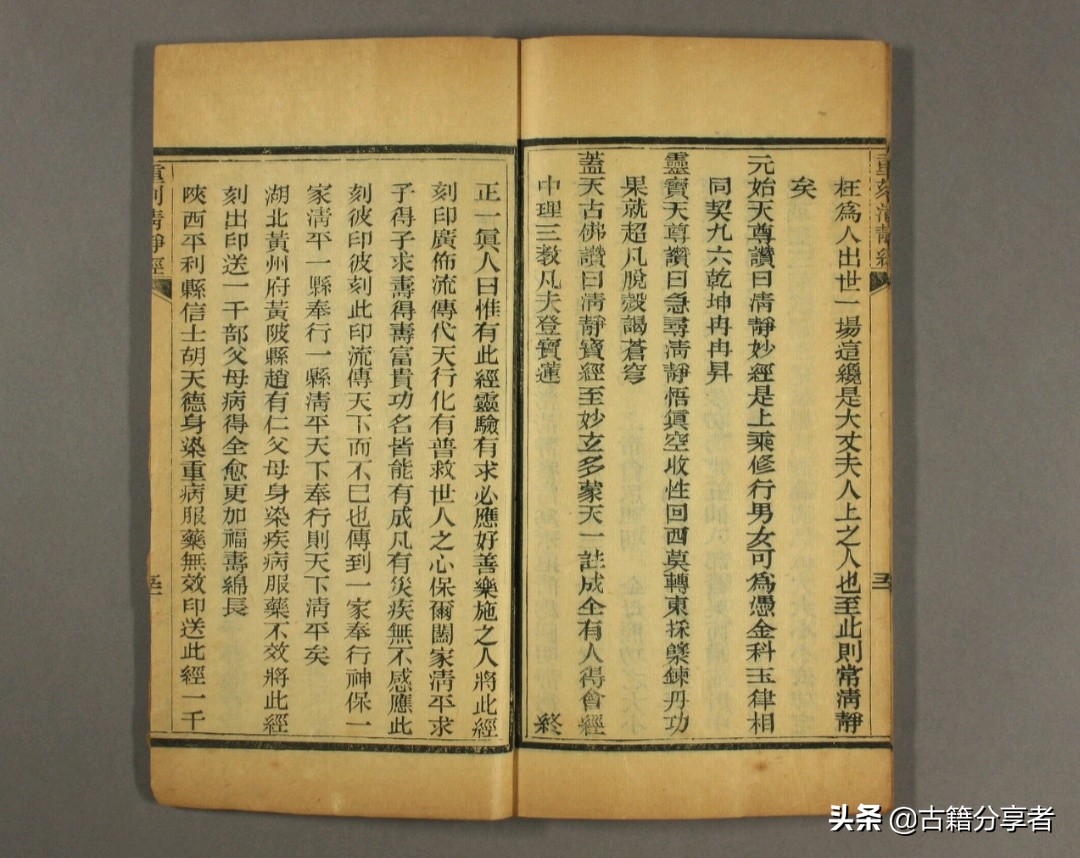 枉為人出世一場這纔是大丈夫人上之人也至此則常清靜
矣
元始天尊讚曰清靜妙經是上乘修行男女可為憑金科玉律相
同契九六乾坤冉冉昇
靈寶天尊讚曰急尋清靜悟真空收性回西莫轉東採藥鍊丹功
果就超凡脫殼謁蒼穹
蓋天古佛讚曰清靜寶經至妙玄多蒙天一註成全有人得會經
中理三教凡夫登寶蓮 終
重刻清靜經
正一真人曰惟有此經靈驗有求必應好善樂施之人將此經
刻印廣佈流傳代天行化有普救世人之心保爾闔家清平求
子得子求壽得壽富貴功名皆能有成凡有災疾無不感應此
刻彼印彼刻此印流傳天下而不已也傳到一家奉行神保一
家清平一縣奉行一縣清平天下奉行則天下清平矣
湖北黃州府黃陂縣趙有仁父母身染疾病服藥不效將此經
刻出印送一千部父母病得全愈更加福壽綿長
陝西平利縣信士胡天德身染重病服藥無效印送此經一千
重刻清靜經
头条 @古籍分享者